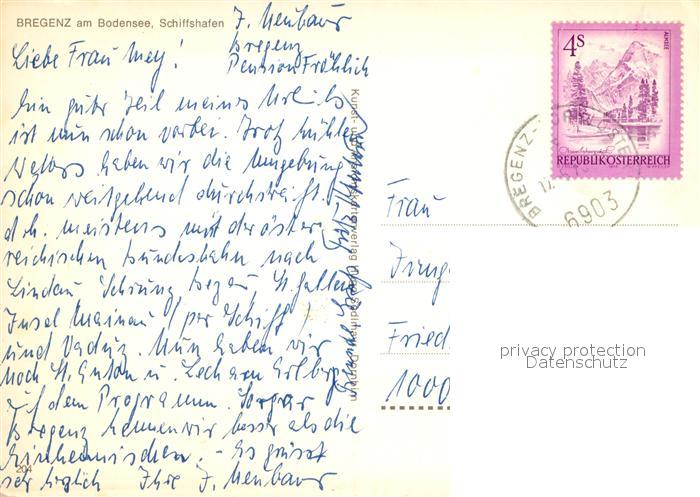 BREGENZ am Bodensee, Schiffshafen
J. Neubaur
Bregenz
Pension Fröhlich
Liebe Frau Mey!
Ein guter Teil meines Urlaubs
ist nun schon vorbei. Trotz kühlen
haben wir die Umgebung
schon weitgehend durchstreift.
d.h. meistens mit der öster
reichischen Bundesbahn nach
Lindau Schruns Bezau St. Gallen
Insel Mainau (per Schiff)
und Vaduz. Nun haben wir
noch St. Anton u. Lech am Arlberg
auf dem Programm. Sogar
Bregenz kennen wir besser als die
Einheimischen. - Es grüsst
sehr herzlich Ihre J. Neubaur
204
Kunst-
4s
ALMSEE
REPUBLIK ÖSTERREICH
BREGENZ-
6903
Frau
Irmg
Fried
1000
privacy protection
Datenschutz